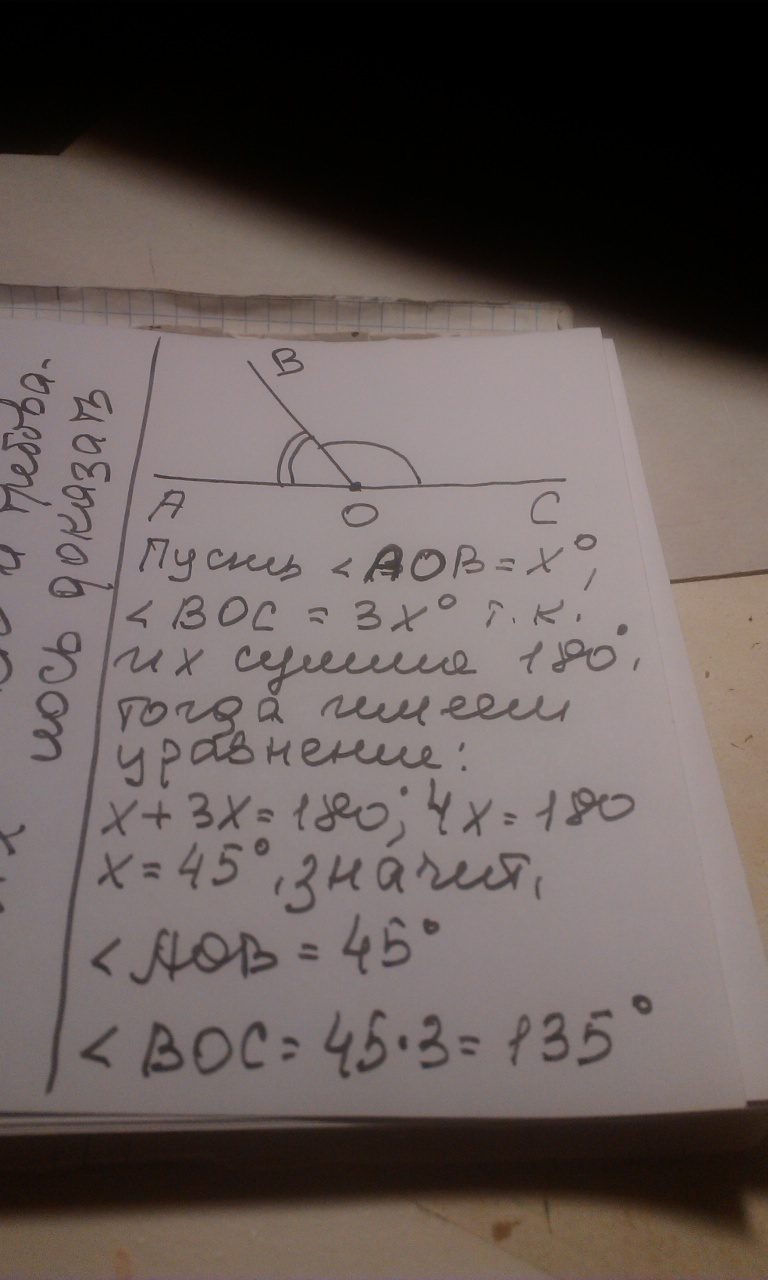 B
A O C
Пусть <AOB = x°,
<BOC = 3x° т.к.
их сумма 180°,
тогда имеем
уравнение:
x + 3x = 180; 4x = 180
x = 45°, значит,
<AOB = 45°
<BOC = 45·3 = 135°
требова-
лось доказать